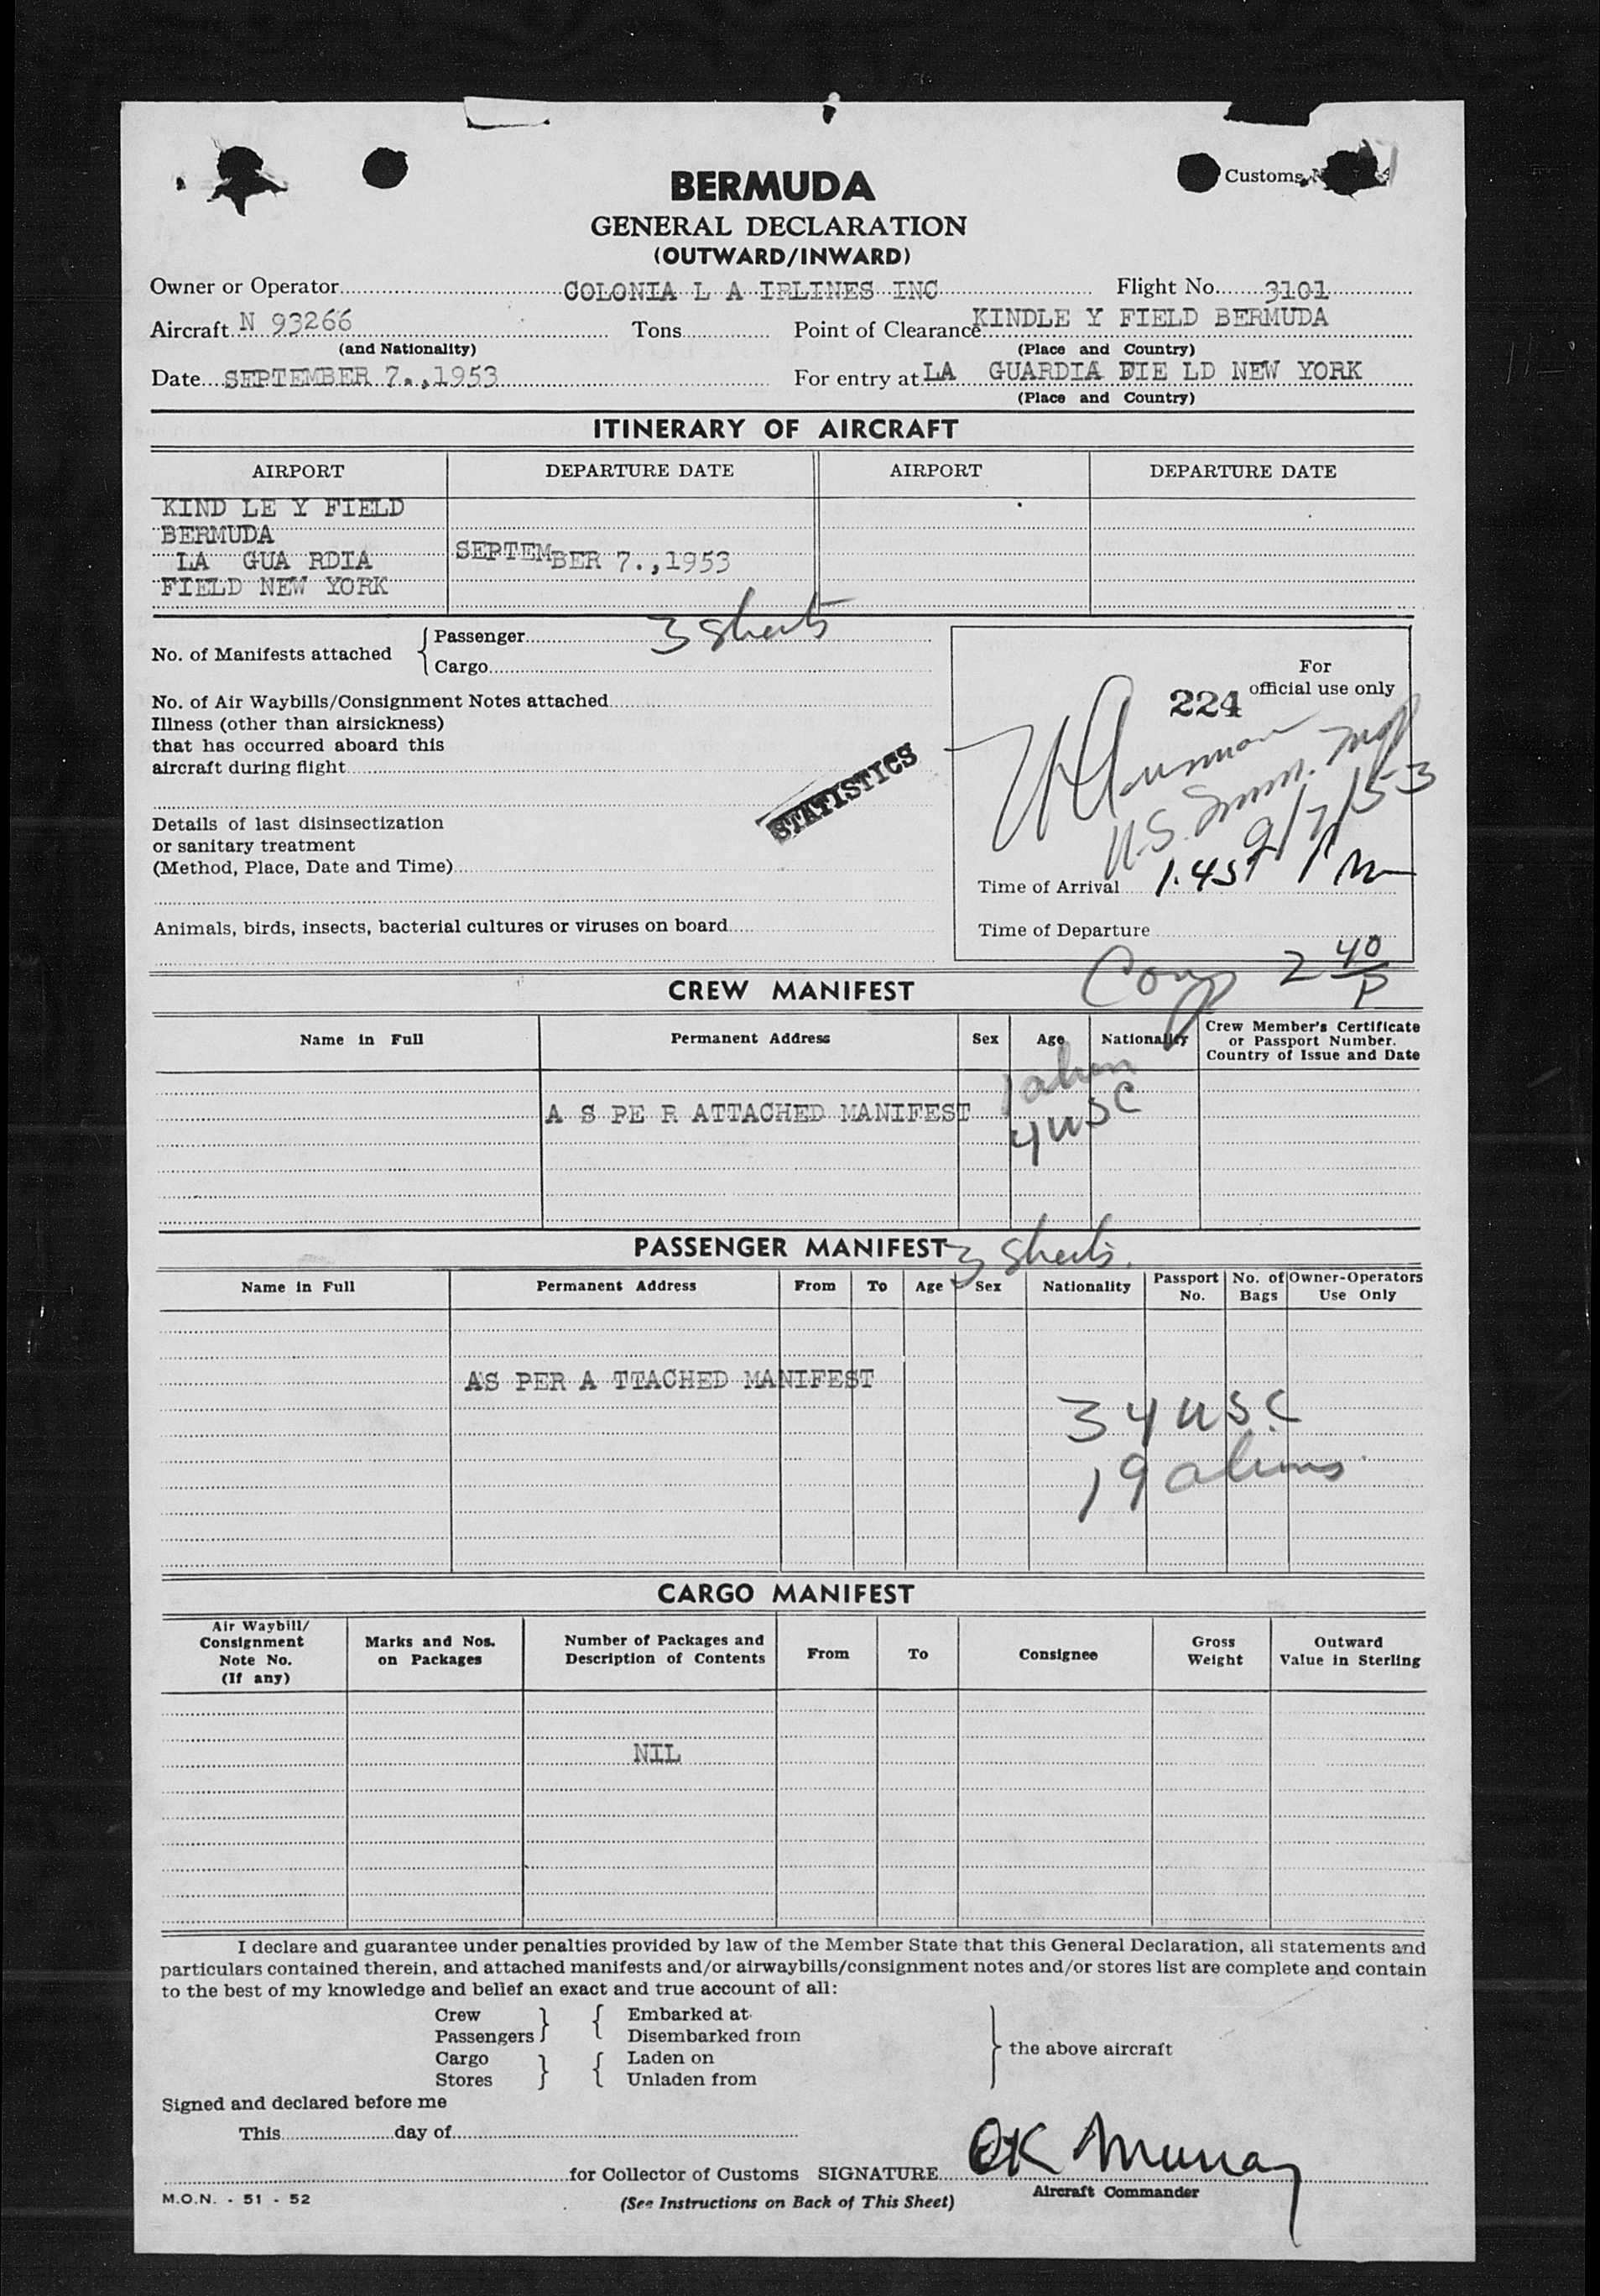 Customs
BERMUDA
GENERAL DECLARATION
(OUTWARD/INWARD)
Owner or Operator COLONIA L A IRLINES INC Flight No. 3101
Aircraft N 93266 Tons Point of Clearance KINDLE Y FIELD BERMUDA
(and Nationality) (Place and Country)
Date SEPTEMBER 7.,1953 For entry at LA GUARDIA FIE LD NEW YORK
(Place and Country)
ITINERARY OF AIRCRAFT
AIRPORT DEPARTURE DATE AIRPORT DEPARTURE DATE
KIND LE Y FIELD
BERMUDA
LA GUA RDIA SEPTEMBER 7.,1953
FIELD NEW YORK
No. of Manifests attached { Passenger 3 sheets
Cargo
For
official use only
224
No. of Air Waybills/Consignment Notes attached
Illness (other than airsickness)
that has occurred aboard this
aircraft during flight
STATISTICS
U.S. Imm. Insp
9/7/53
Details of last disinsectization
or sanitary treatment
(Method, Place, Date and Time)
Time of Arrival 1.45
Animals, birds, insects, bacterial cultures or viruses on board
Time of Departure
Comp 2 40/P
CREW MANIFEST
Name in Full Permanent Address Sex Age Nationality Crew Member's Certificate
or Passport Number.
Country of Issue and Date
1 alien
A S PE R ATTACHED MANIFEST 4 USC
PASSENGER MANIFEST 3 sheets.
Name in Full Permanent Address From To Age Sex Nationality Passport No. No. of Bags Owner-Operators Use Only
AS PER A TTACHED MANIFEST
34 USC
19 aliens
CARGO MANIFEST
Air Waybill/
Consignment
Note No.
(If any) Marks and Nos.
on Packages Number of Packages and
Description of Contents From To Consignee Gross
Weight Outward
Value in Sterling
NIL
I declare and guarantee under penalties provided by law of the Member State that this General Declaration, all statements and
particulars contained therein, and attached manifests and/or airwaybills/consignment notes and/or stores list are complete and contain
to the best of my knowledge and belief an exact and true account of all:
Crew } { Embarked at
Passengers Disembarked from
} the above aircraft
Cargo } { Laden on
Stores Unladen from
Signed and declared before me
This day of
for Collector of Customs SIGNATURE OK Murray
Aircraft Commander
M.O.N. - 51 - 52 (See Instructions on Back of This Sheet)